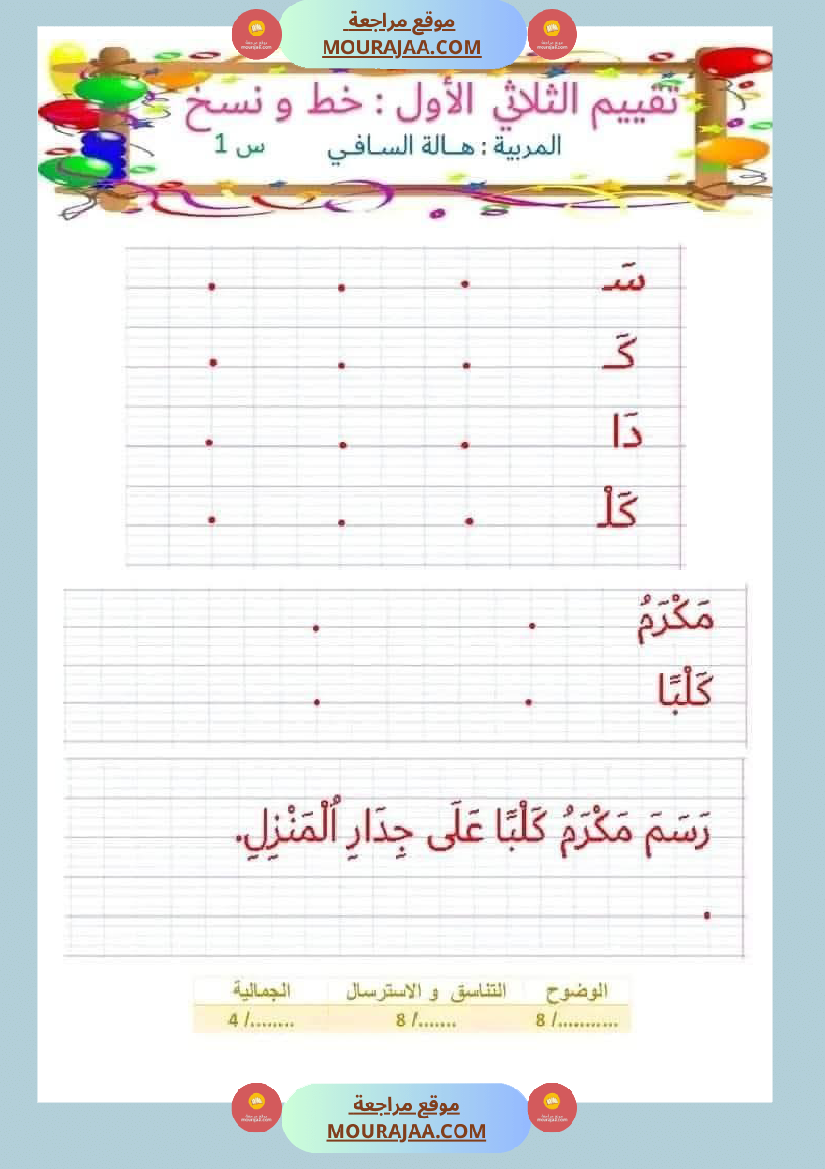 موقع مراجعة
MOURAJAA.COM
تقييم الثلاثي الأول : خط و نسخ
المربية : هـالة السـافـي س 1
سَـ
كَـ
دَا
كَلْـ
مَكْرَمُ
كَلْبًا
رَسَمَ مَكْرَمُ كَلْبًا عَلَى جِدَارِ ٱلْمَنْزِلِ.
الوضوح التناسق و الاسترسال الجمالية
........../ 8 ......./ 8 ......../ 4
موقع مراجعة
MOURAJAA.COM